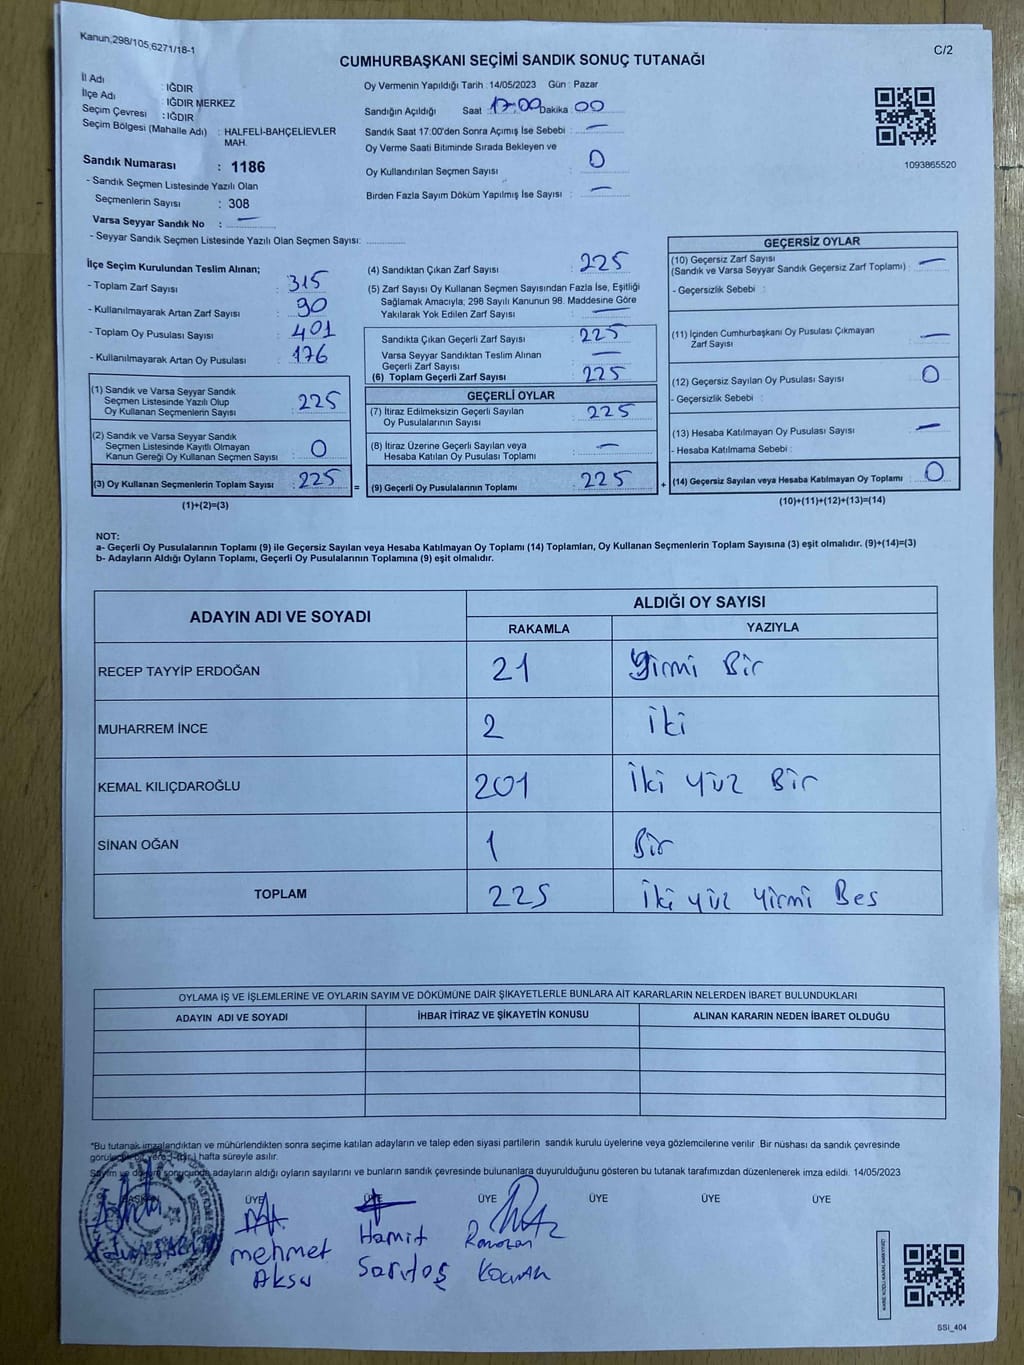 Kanun,298/105,6271/18-1
C/2
CUMHURBAŞKANI SEÇİMİ SANDIK SONUÇ TUTANAĞI
İl Adı : IĞDIR
İlçe Adı : IĞDIR MERKEZ
Seçim Çevresi : IĞDIR
Seçim Bölgesi (Mahalle Adı) : HALFELİ-BAHÇELİEVLER
MAH.
Sandık Numarası : 1186
- Sandık Seçmen Listesinde Yazılı Olan
Seçmenlerin Sayısı : 308
Varsa Seyyar Sandık No : —
- Seyyar Sandık Seçmen Listesinde Yazılı Olan Seçmen Sayısı:
Oy Vermenin Yapıldığı Tarih : 14/05/2023 Gün : Pazar
Sandığın Açıldığı Saat : 17:00 Dakika : 00
Sandık Saat 17:00'den Sonra Açımış İse Sebebi : —
Oy Verme Saati Bitiminde Sırada Bekleyen ve
Oy Kullandırılan Seçmen Sayısı : 0
Birden Fazla Sayım Döküm Yapılmış İse Sayısı : —
1093865520
İlçe Seçim Kurulundan Teslim Alınan;
- Toplam Zarf Sayısı : 315
- Kullanılmayarak Artan Zarf Sayısı : 90
- Toplam Oy Pusulası Sayısı : 401
- Kullanılmayarak Artan Oy Pusulası : 176
(1) Sandık ve Varsa Seyyar Sandık
Seçmen Listesinde Yazılı Olup
Oy Kullanan Seçmenlerin Sayısı : 225
(2) Sandık ve Varsa Seyyar Sandık
Seçmen Listesinde Kayıtlı Olmayan
Kanun Gereği Oy Kullanan Seçmen Sayısı : 0
(3) Oy Kullanan Seçmenlerin Toplam Sayısı : 225 =
(1)+(2)=(3)
(4) Sandıktan Çıkan Zarf Sayısı : 225
(5) Zarf Sayısı Oy Kullanan Seçmen Sayısından Fazla İse, Eşitliği
Sağlamak Amacıyla; 298 Sayılı Kanunun 98. Maddesine Göre
Yakılarak Yok Edilen Zarf Sayısı : —
Sandıkta Çıkan Geçerli Zarf Sayısı : 225
Varsa Seyyar Sandıktan Teslim Alınan
Geçerli Zarf Sayısı : —
(6) Toplam Geçerli Zarf Sayısı : 225
GEÇERLİ OYLAR
(7) İtiraz Edilmeksizin Geçerli Sayılan
Oy Pusulalarının Sayısı : 225
(8) İtiraz Üzerine Geçerli Sayılan veya
Hesaba Katılan Oy Pusulası Toplamı : —
(9) Geçerli Oy Pusulalarının Toplamı : 225 +
GEÇERSİZ OYLAR
(10) Geçersiz Zarf Sayısı
(Sandık ve Varsa Seyyar Sandık Geçersiz Zarf Toplamı) : —
- Geçersizlik Sebebi :
(11) İçinden Cumhurbaşkanı Oy Pusulası Çıkmayan
Zarf Sayısı : —
(12) Geçersiz Sayılan Oy Pusulası Sayısı : 0
- Geçersizlik Sebebi :
(13) Hesaba Katılmayan Oy Pusulası Sayısı : —
- Hesaba Katılmama Sebebi :
(14) Geçersiz Sayılan veya Hesaba Katılmayan Oy Toplamı : 0
(10)+(11)+(12)+(13)=(14)
NOT:
a- Geçerli Oy Pusulalarının Toplamı (9) ile Geçersiz Sayılan veya Hesaba Katılmayan Oy Toplamı (14) Toplamları, Oy Kullanan Seçmenlerin Toplam Sayısına (3) eşit olmalıdır. (9)+(14)=(3)
b- Adayların Aldığı Oyların Toplamı, Geçerli Oy Pusulalarının Toplamına (9) eşit olmalıdır.
ADAYIN ADI VE SOYADI ALDIĞI OY SAYISI
RAKAMLA YAZIYLA
RECEP TAYYİP ERDOĞAN 21 Yirmi Bir
MUHARREM İNCE 2 İki
KEMAL KILIÇDAROĞLU 201 İki Yüz Bir
SİNAN OĞAN 1 Bir
TOPLAM 225 İki Yüz Yirmi Bes
OYLAMA İŞ VE İŞLEMLERİNE VE OYLARIN SAYIM VE DÖKÜMÜNE DAİR ŞİKAYETLERLE BUNLARA AİT KARARLARIN NELERDEN İBARET BULUNDUKLARI
ADAYIN ADI VE SOYADI İHBAR İTİRAZ VE ŞİKAYETİN KONUSU ALINAN KARARIN NEDEN İBARET OLDUĞU
*Bu tutanak imzalandıktan ve mühürlendikten sonra seçime katılan adayların ve talep eden siyasi partilerin sandık kurulu üyelerine veya gözlemcilerine verilir. Bir nüshası da sandık çevresinde
hafta süreyle asılır.
adayların aldığı oyların sayılarını ve bunların sandık çevresinde bulunanlara duyurulduğunu gösteren bu tutanak tarafımızdan düzenlenerek imza edildi. 14/05/2023
ÜYE ÜYE ÜYE ÜYE ÜYE ÜYE
mehmet Aksu
Hamit Sarıtaş
Ramazan
SSİ_404